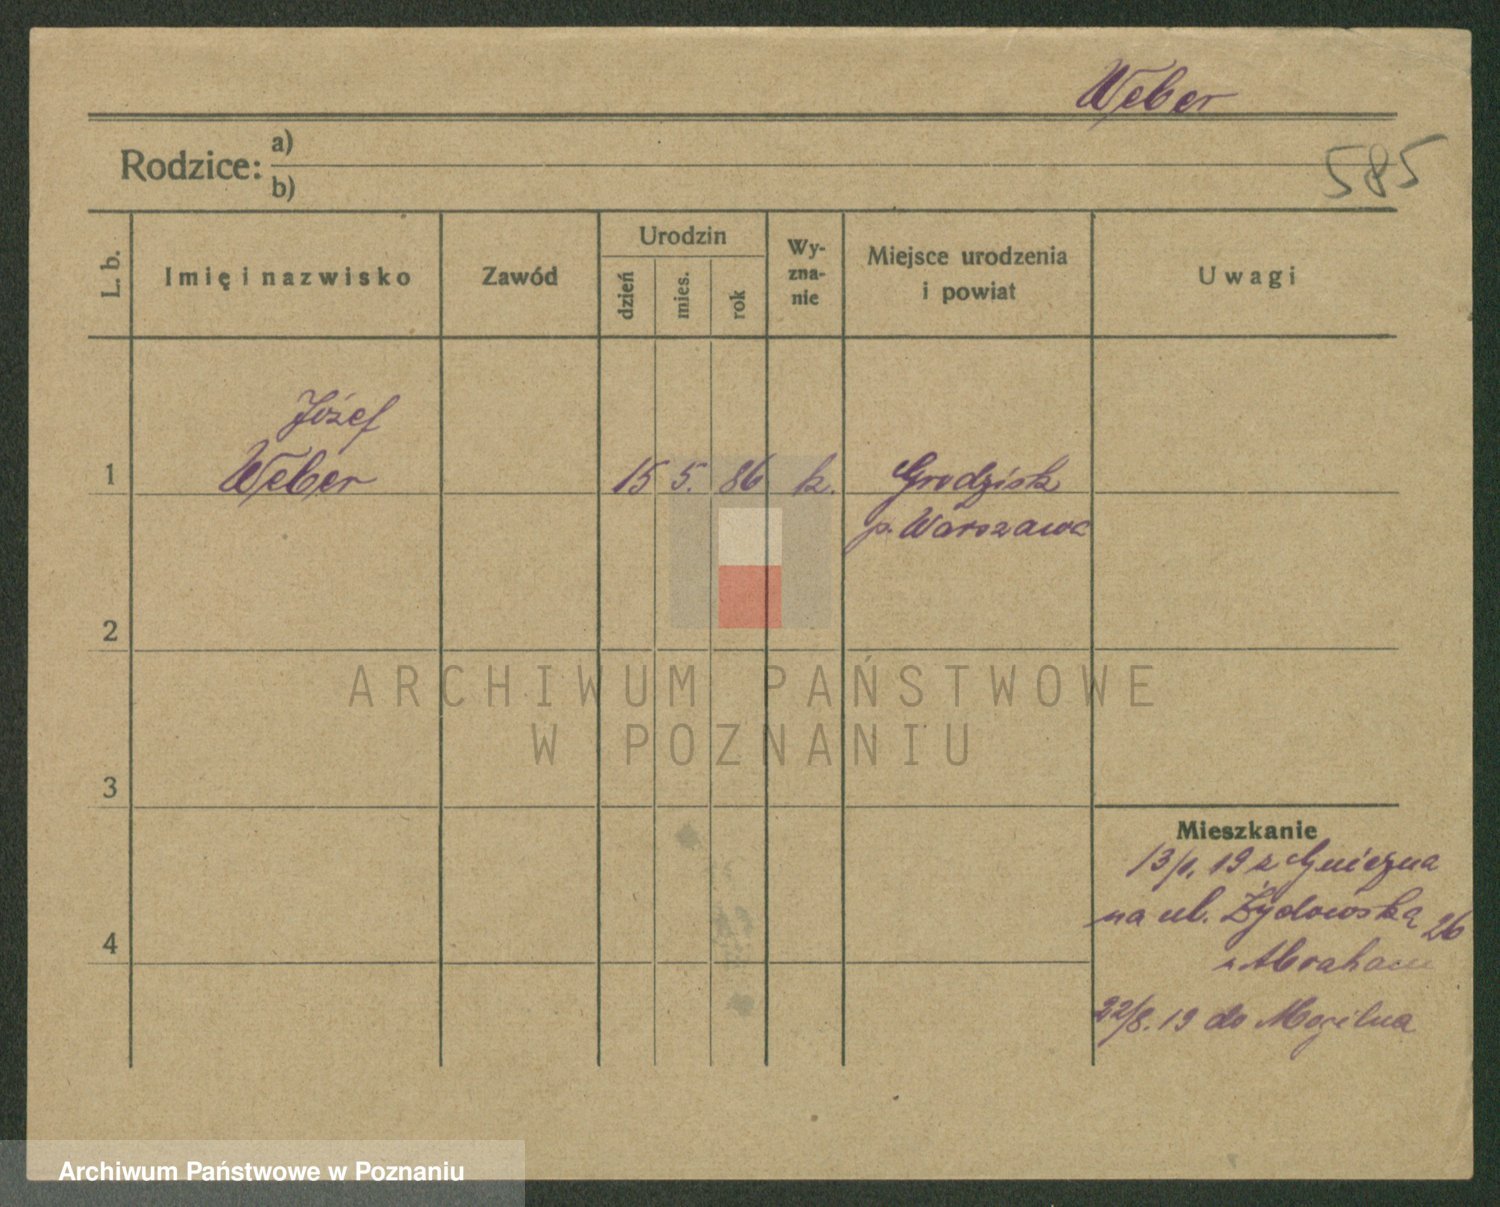 Weber
585
Rodzice: a)
b)
L. b.
Imię i nazwisko
Zawód
Urodzin
dzień
mies.
rok
Wy-
zna-
nie
Miejsce urodzenia
i powiat
Uwagi
Józef
1 Weber 15 5. 86 k. Grodzisk
p. Warszawa
2
ARCHIWUM PAŃSTWOWE
W POZNANIU
3
Mieszkanie
13/1. 19 z Gniezna
na ul. Żydowską 26
Abraham
4
22/8. 19 do Mogilna
Archiwum Państwowe w Poznaniu